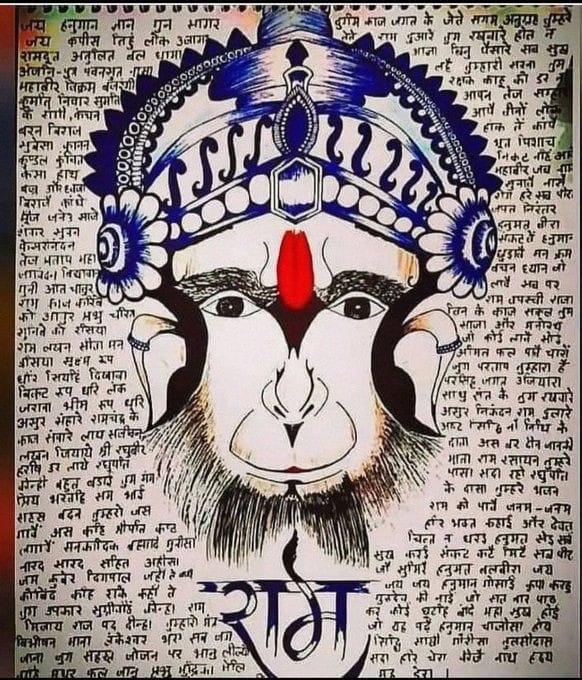 जय हनुमान ज्ञान गुन सागर
जय कपीस तिहुं लोक उजागर
रामदूत अतुलित बल धामा
अंजनि-पुत्र पवनसुत नामा
महाबीर बिक्रम बजरंगी
कुमति निवार सुमति
के संगी कंचन
बरन बिराज
सुबेसा कानन
कुण्डल कुंचित
केसा हाथ
बज्र औ ध्वजा
बिराजै कांधे
मूंज जनेऊ साजे
शंकर सुवन
केसरीनंदन
तेज प्रताप महा
जगवंदन विद्यावान
गुनी अति चातुर
राम काज करिबे
को आतुर प्रभु चरित्र
सुनिबे को रसिया
राम लखन सीता मन
बसिया सूक्ष्म रूप
धरि सियहिं दिखावा
बिकट रूप धरि लंक
जरावा भीम रूप धरि
असुर संहारे रामचंद्र के
काज संवारे लाय सजीवन
लखन जियाये श्री रघुबीर
हरषि उर लाये रघुपति
कीन्ही बहुत बड़ाई तुम मम
प्रिय भरतहि सम भाई
सहस बदन तुम्हरो जस
गावैं अस कहि श्रीपति कण्ठ
लगावैं सनकादिक ब्रह्मादि मुनीसा
नारद सारद सहित अहीसा
जम कुबेर दिगपाल जहाँ ते कबि
कोबिद कहि सके कहाँ ते
तुम उपकार सुग्रीवहिं कीन्हा राम
मिलाय राज पद दीन्हा तुम्हारो मंत्र
बिभीषन माना लंकेश्वर भए सब जग
जाना जुग सहस्र जोजन पर भानु लील्यो
ताहि मधुर फल जानू प्रभु मुद्रिका मेलि
दुर्गम काज जगत के जेते सुगम अनुग्रह तुम्हरे
तेते राम दुआरे तुम रखवारे होत न
आज्ञा बिनु पैसारे सब सुख
लहै तुम्हारी सरना तुम
रक्षक काहू को डर ना
आपन तेज सम्हारो
आपै तीनों लोक
हांक तें कांपै
भूत पिशाच
निकट नहिं आवै
महाबीर जब नाम
सुनावै नासै
रोग हरे सब पीरा
जपत निरंतर
हनुमत बीरा
संकट तें हनुमान
छुड़ावै मन क्रम
बचन ध्यान जो
लावै सब पर
राम तपस्वी राजा
तिन के काज सकल तुम
साजा और मनोरथ
जो कोई लावै सोई
अमित फल पावै चारों
जुग परताप तुम्हारा है
परसिद्ध जगत उजियारा
साधु संत के तुम रखवारे
असुर निकंदन राम दुलारे
अष्ट सिद्धि नौ निधि के
दाता अस बर दीन जानकी
माता राम रसायन तुम्हरे
पासा सदा रहो रघुपति
के दासा तुम्हरे भजन
राम को पावै जनम-जनम
हरि भक्त कहाई और देवता
चित्त न धरई हनुमत सेई सर्ब
सुख करई संकट कटै मिटै सब पीरा
जो सुमिरै हनुमत बलबीरा जय
जय जय हनुमान गोसाईं कृपा करहु
गुरुदेव की नाईं जो सत बार पाठ
कर कोई छूटहि बंदि महा सुख होई
जो यह पढ़ै हनुमान चालीसा होय
सिद्धि साखी गौरीसा तुलसीदास
सदा हरि चेरा कीजै नाथ हृदय
मह डेरा
राम